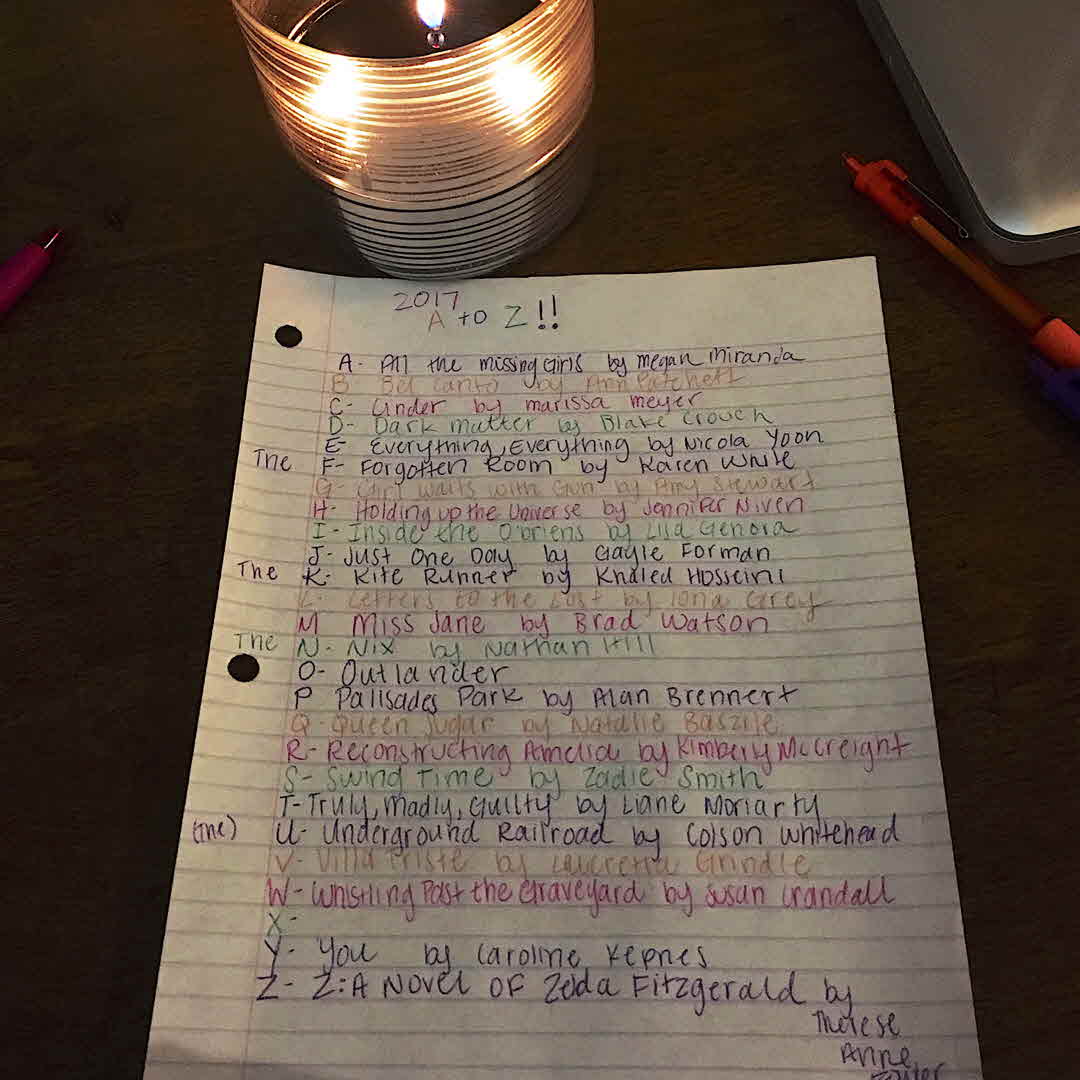 2017
A to Z!!
A- All the missing Girls by megan Miranda
B- Bel Canto by Ann Patchett
C- Cinder by marissa meyer
D- Dark matter by Blake Crouch
E- Everything, Everything by Nicola Yoon
The F- Forgotten Room by Karen White
G- Girl waits with Gun by Amy Stewart
H- Holding up the Universe by Jennifer Niven
I- Inside the O'briens by Lisa Genova
J- Just One Day by Gayle Forman
The K- Kite Runner by Khaled Hosseini
L- Letters to the Lost by Iona Grey
M Miss Jane by Brad Watson
The N- Nix by Nathan Hill
O- Outlander
P Palisades Park by Alan Brennert
Q- Queen Sugar by Natalie Baszile
R- Reconstructing Amelia by Kimberly McCreight
S- Swing Time by Zadie Smith
T- Truly, Madly, Guilty by Liane Moriarty
(The) U- Underground Railroad by Colson Whitehead
V- Villa Triste by Lucretia Grindle
W- Whistling Past the Graveyard by Susan Crandall
X-
Y- You by Caroline Kepnes
Z- Z: A Novel OF Zelda Fitzgerald by
Therese
Anne